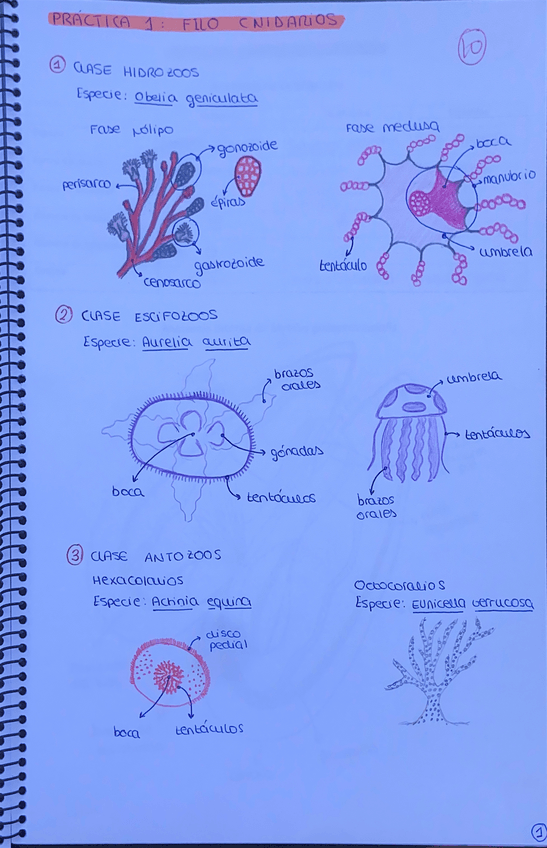 PRÁCTICA 1: FILO CNIDARIOS
10
1 CLASE HIDROZOOS
Especie: Obelia geniculata
Fase pólipo
gonozoide
perisarco
épiras
gastrozoide
cenosarco
Fase medusa
boca
manubrio
umbrela
tentáculo
2 CLASE ESCIFOZOOS
Especie: Aurelia aurita
brazos
orales
gónadas
boca
tentáculos
umbrela
tentáculos
brazos
orales
3 CLASE ANTOZOOS
Hexacoralios
Especie: Actinia equina
disco
pedial
boca
tentáculos
Octocoralios
Especie: Eunicella verrucosa
1